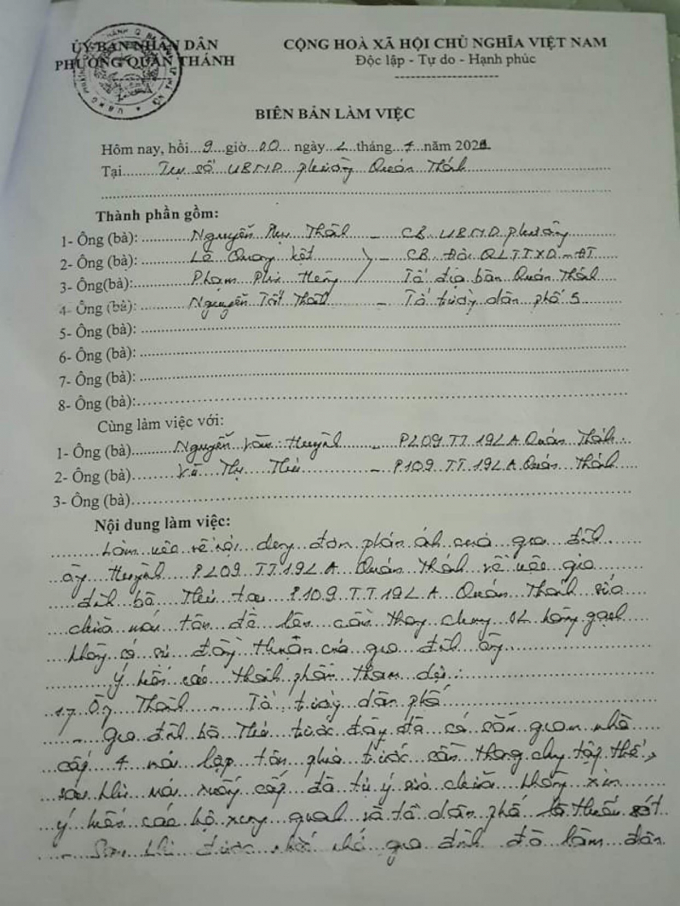 ỦY BAN NHÂN DÂN
PHƯỜNG QUÁN THÁNH
CỘNG HOÀ XÃ HỘI CHỦ NGHĨA VIỆT NAM
Độc lập - Tự do - Hạnh phúc
BIÊN BẢN LÀM VIỆC
Hôm nay, hồi 9 giờ 00 ngày tháng 202
Tại Trụ sở UBND phường Quán Thánh
Thành phần gồm:
1- Ông (bà): Nguyễn - CB UBND phường
2- Ông (bà): Lê Quang - CB Đội QLTTXD-ĐT
3- Ông(bà): Phạm - Tổ địa bàn Quán Thánh
4- Ông (bà): Nguyễn - Tổ trưởng dân phố 5
5- Ông (bà):
6- Ông (bà):
7- Ông (bà):
8- Ông (bà):
Cùng làm việc với:
1- Ông (bà) Nguyễn Văn Huỳnh - P209 TT 19LA Quán Thánh
2- Ông (bà) Thị - P109 TT 19LA Quán Thánh
3- Ông (bà)
Nội dung làm việc:
Làm việc về nội dung đơn phản ánh của gia đình
ông Huỳnh P209 TT 19LA Quán Thánh về việc gia
đình bà tại P109 TT 19LA Quán Thánh sửa
chữa mái tôn đè lên cầu thang chung bằng gạch
không có sự đồng thuận của gia đình ông
Ý kiến các thành phần tham dự:
1. Ông - Tổ trưởng dân phố
- Gia đình bà trước đây đã có gian nhà
cấp 4 mái lợp tôn phía trước cầu thang tập thể,
sau khi mái xuống cấp đã tự ý sửa chữa không xin
ý kiến các hộ xung quanh và tổ dân phố là thiếu sót
- Sau khi được nhắc nhở gia đình đã làm đơn